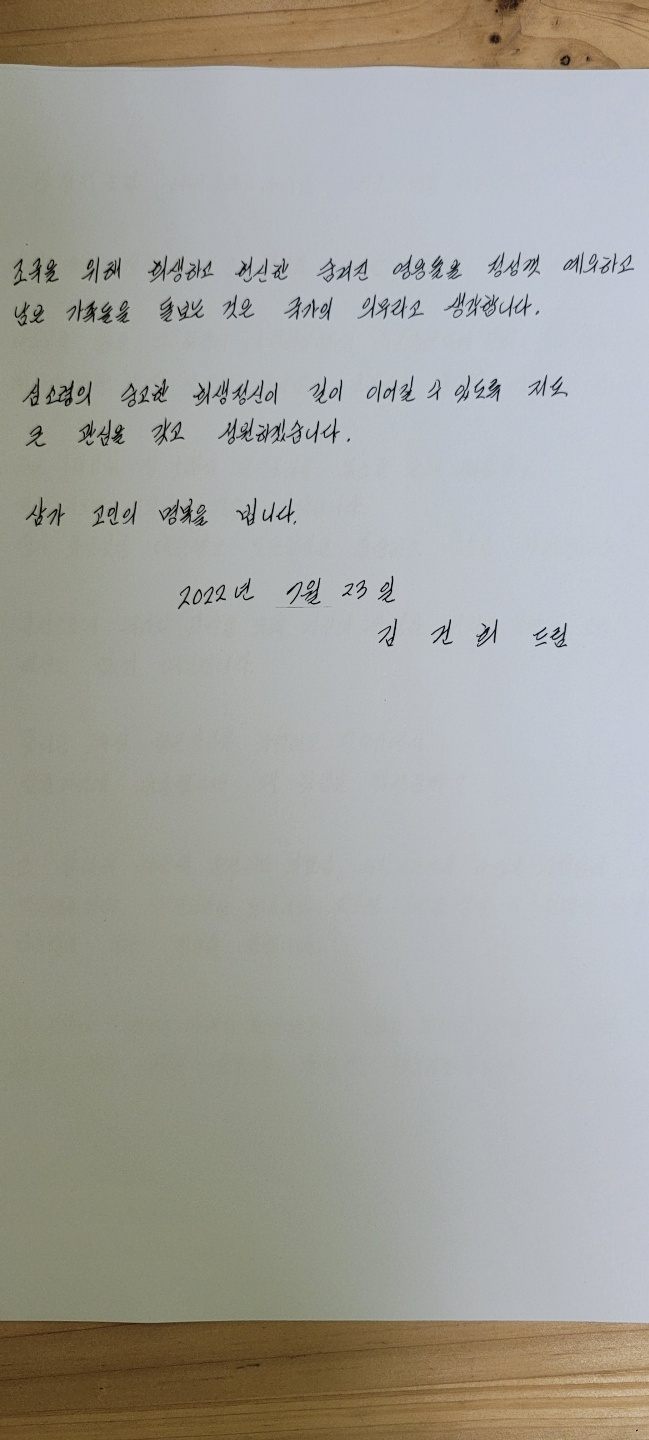 조국을 위해 희생하고 헌신한 숨겨진 영웅들을 정성껏 예우하고
남은 가족들을 돌보는 것은 국가의 의무라고 생각합니다.
심소령의 숭고한 희생정신이 길이 이어질 수 있도록 저도
큰 관심을 갖고 성원하겠습니다.
삼가 고인의 명복을 빕니다.
2022년 7월 23일
김 건 희 드림